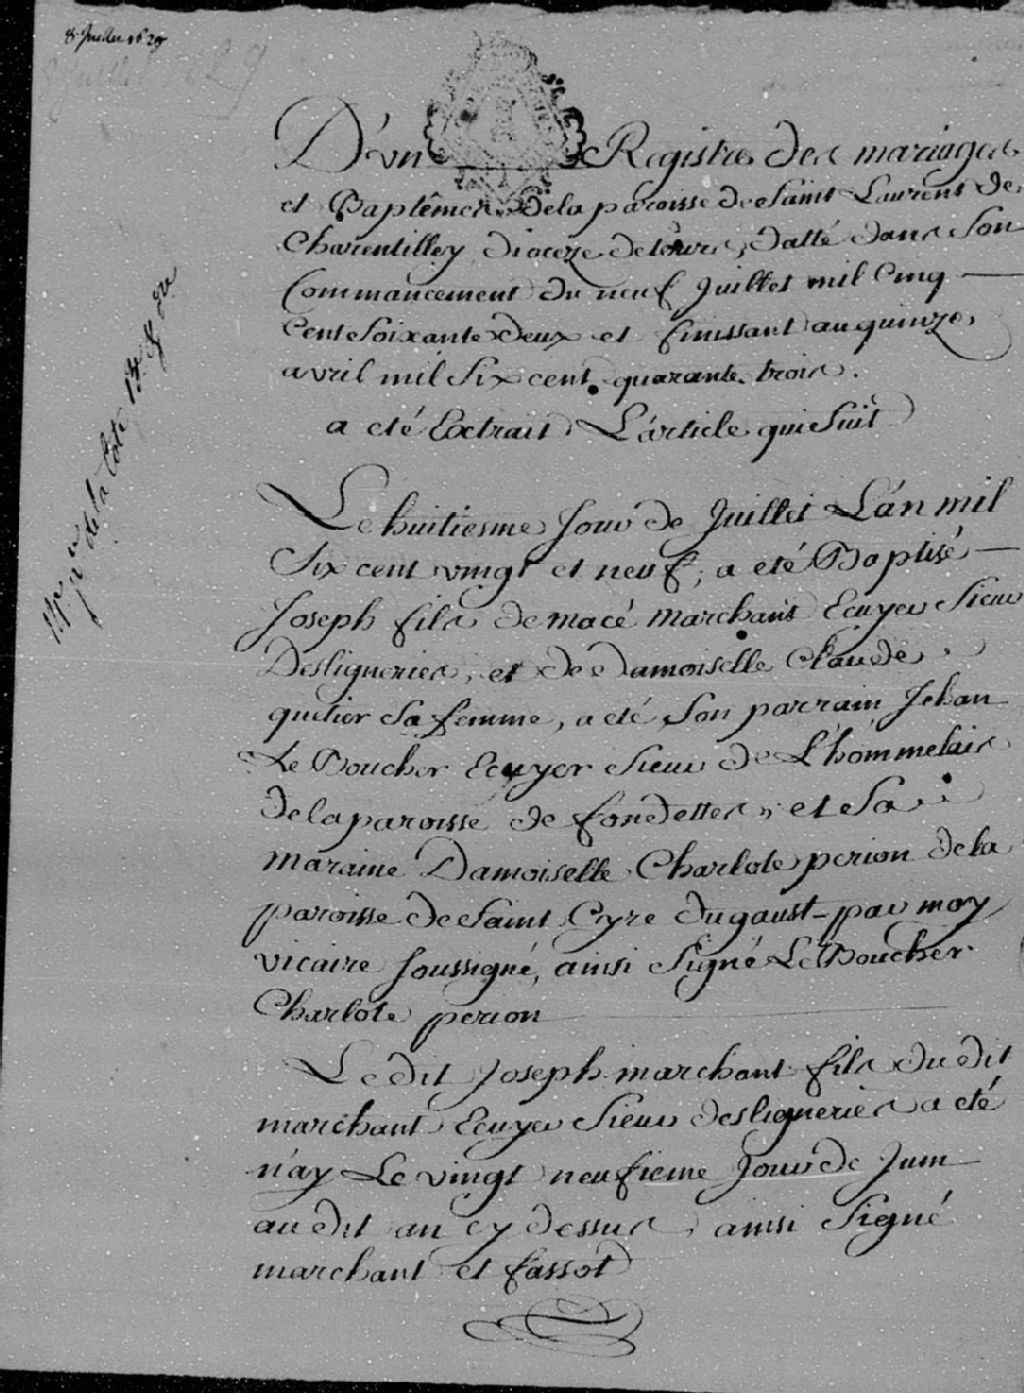 8 Juillet 1629
D'un Registre des mariages
et Baptêmes dela paroisse de Saint Laurent de
Charentilley dioceze detours, datté dans son
Commancement du neuf Juillet mil Cinq
Cent Soixante deux et finissant au quinze
avril mil Six cent quarante trois.
a eté Extrait L'article qui Suit
Le huitiesme Jour de Juillet L'an mil
Six cent vingt et neuf, a eté Baptisé
Joseph fils de macé marchant Ecuyer Sieur
Desligneries, et de Damoiselle Claude
quetier Sa femme, a eté Son parrain Jehan
Le Boucher Ecuyer Sieur de L'hommelais
dela paroisse de fondettes, et Sa
maraine Damoiselle Charlote perion dela
paroisse de Saint Cyre dugaust par moy
vicaire Soussigné, ainsi Signé Le Boucher
Charlote perion
Le dit Joseph marchant fils dudit
marchant Ecuyer Sieur desligneries a eté
n'ay Le vingt neufieme Jour de Juin
audit an cy dessus, ainsi Signé
marchant et fassot
de la Cote